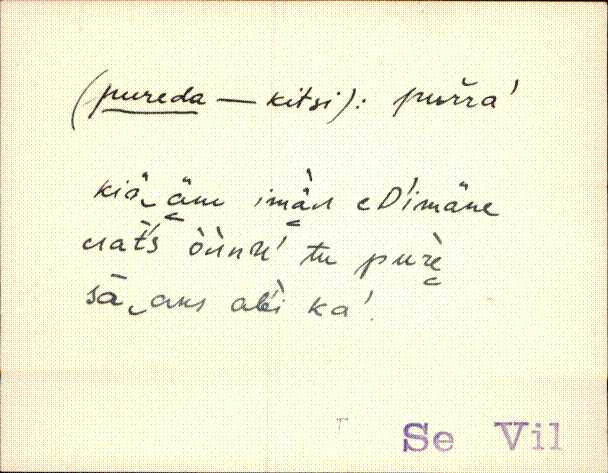 (pureda — kitsi): purra'
kiä‿äm imä̀n eD́imäne
nat's òùnu' tu purè
sā‿ans al'ì ka'.
Se Vil